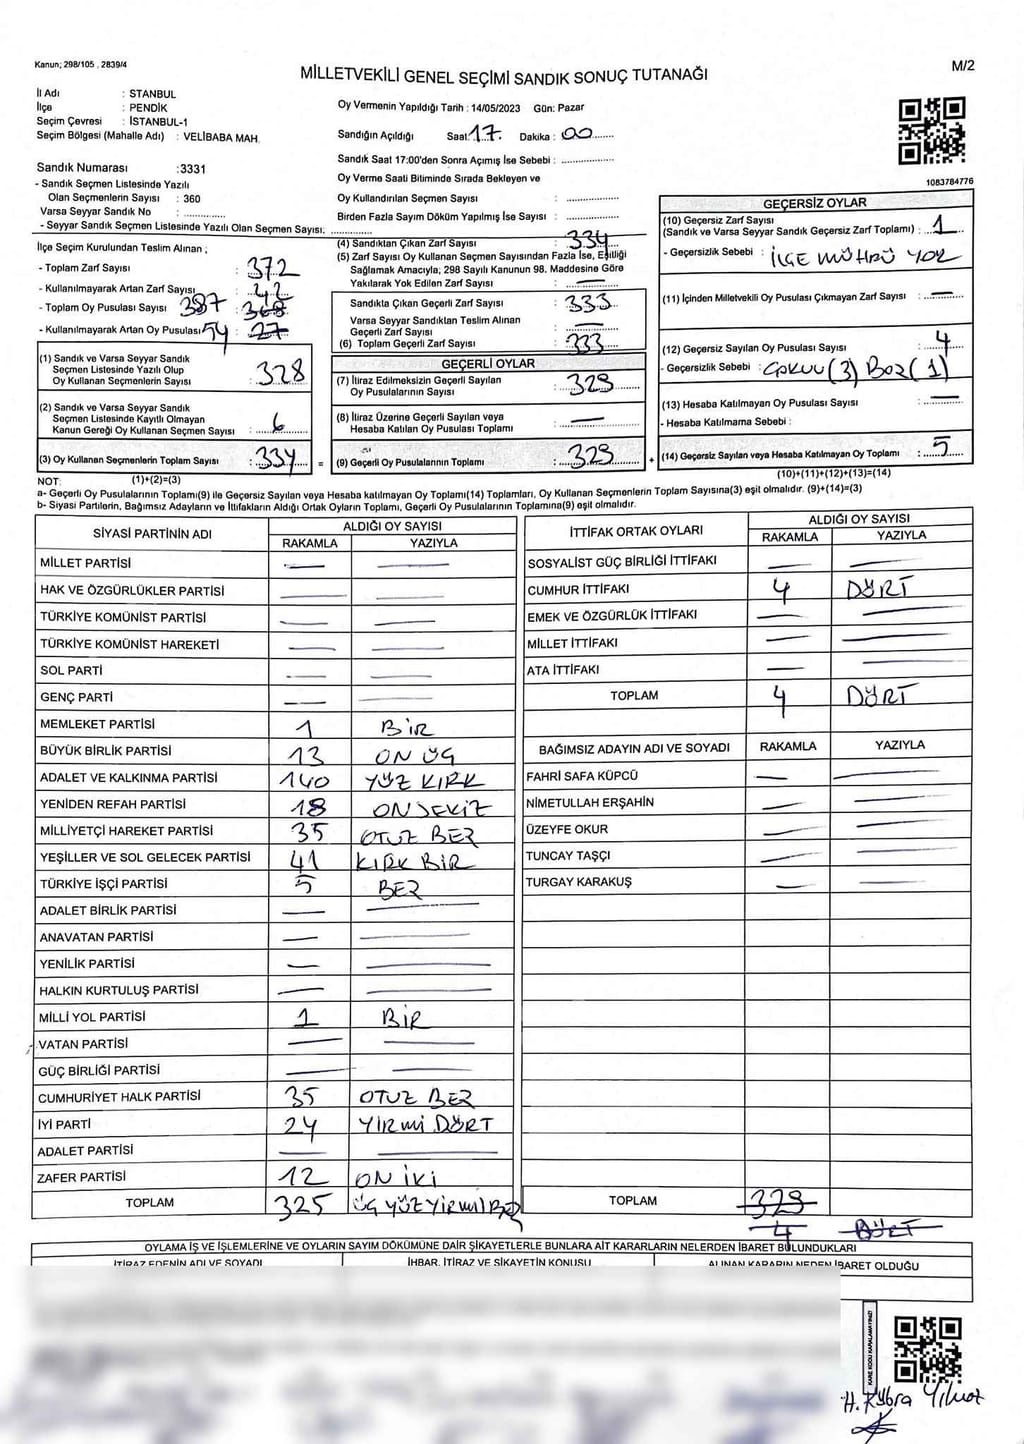 Kanun; 298/105 , 2839/4
MİLLETVEKİLİ GENEL SEÇİMİ SANDIK SONUÇ TUTANAĞI
M/2
İl Adı : STANBUL
İlçe : PENDİK
Seçim Çevresi : İSTANBUL-1
Seçim Bölgesi (Mahalle Adı) : VELİBABA MAH.
Oy Vermenin Yapıldığı Tarih : 14/05/2023 Gün: Pazar
Sandığın Açıldığı Saat: 17. Dakika : 00
Sandık Saat 17:00'den Sonra Açımış İse Sebebi :
Oy Verme Saati Bitiminde Sırada Bekleyen ve
Oy Kullandırılan Seçmen Sayısı :
Birden Fazla Sayım Döküm Yapılmış İse Sayısı :
1083784776
Sandık Numarası :3331
- Sandık Seçmen Listesinde Yazılı
Olan Seçmenlerin Sayısı : 360
Varsa Seyyar Sandık No :
- Seyyar Sandık Seçmen Listesinde Yazılı Olan Seçmen Sayısı:
İlçe Seçim Kurulundan Teslim Alınan ;
- Toplam Zarf Sayısı : 372
- Kullanılmayarak Artan Zarf Sayısı : 42
- Toplam Oy Pusulası Sayısı 387 : 368
- Kullanılmayarak Artan Oy Pusulası 54 : 27
(1) Sandık ve Varsa Seyyar Sandık
Seçmen Listesinde Yazılı Olup
Oy Kullanan Seçmenlerin Sayısı : 328
(2) Sandık ve Varsa Seyyar Sandık
Seçmen Listesinde Kayıtlı Olmayan
Kanun Gereği Oy Kullanan Seçmen Sayısı : 6
(3) Oy Kullanan Seçmenlerin Toplam Sayısı : 334 =
(4) Sandıktan Çıkan Zarf Sayısı : 334
(5) Zarf Sayısı Oy Kullanan Seçmen Sayısından Fazla İse, Eşitliği
Sağlamak Amacıyla; 298 Sayılı Kanunun 98. Maddesine Göre
Yakılarak Yok Edilen Zarf Sayısı : —
Sandıkta Çıkan Geçerli Zarf Sayısı : 333
Varsa Seyyar Sandıktan Teslim Alınan
Geçerli Zarf Sayısı : —
(6) Toplam Geçerli Zarf Sayısı : 333
GEÇERLİ OYLAR
(7) İtiraz Edilmeksizin Geçerli Sayılan
Oy Pusulalarının Sayısı : 329
(8) İtiraz Üzerine Geçerli Sayılan veya
Hesaba Katılan Oy Pusulası Toplamı : —
(9) Geçerli Oy Pusulalarının Toplamı : 329 +
GEÇERSİZ OYLAR
(10) Geçersiz Zarf Sayısı
(Sandık ve Varsa Seyyar Sandık Geçersiz Zarf Toplamı) : 1
- Geçersizlik Sebebi : İLÇE MÜHRÜ YOK
(11) İçinden Milletvekili Oy Pusulası Çıkmayan Zarf Sayısı : —
(12) Geçersiz Sayılan Oy Pusulası Sayısı : 4
- Geçersizlik Sebebi : ÇOKLU (3) BOŞ (1)
(13) Hesaba Katılmayan Oy Pusulası Sayısı : —
- Hesaba Katılmama Sebebi :
(14) Geçersiz Sayılan veya Hesaba Katılmayan Oy Toplamı : 5
NOT: (1)+(2)=(3)
(10)+(11)+(12)+(13)=(14)
a- Geçerli Oy Pusulalarının Toplamı(9) ile Geçersiz Sayılan veya Hesaba katılmayan Oy Toplamı(14) Toplamları, Oy Kullanan Seçmenlerin Toplam Sayısına(3) eşit olmalıdır. (9)+(14)=(3)
b- Siyasi Partilerin, Bağımsız Adayların ve İttifakların Aldığı Oyların Toplamı, Geçerli Oy Pusulalarının Toplamına(9) eşit olmalıdır.
SİYASİ PARTİNİN ADI ALDIĞI OY SAYISI
RAKAMLA YAZIYLA
MİLLET PARTİSİ — —
HAK VE ÖZGÜRLÜKLER PARTİSİ — —
TÜRKİYE KOMÜNİST PARTİSİ — —
TÜRKİYE KOMÜNİST HAREKETİ — —
SOL PARTİ — —
GENÇ PARTİ — —
MEMLEKET PARTİSİ 1 BİR
BÜYÜK BİRLİK PARTİSİ 13 ON ÜÇ
ADALET VE KALKINMA PARTİSİ 140 YÜZ KIRK
YENİDEN REFAH PARTİSİ 18 ON SEKİZ
MİLLİYETÇİ HAREKET PARTİSİ 35 OTUZ BEŞ
YEŞİLLER VE SOL GELECEK PARTİSİ 41 KIRK BİR
TÜRKİYE İŞÇİ PARTİSİ 5 BEŞ
ADALET BİRLİK PARTİSİ — —
ANAVATAN PARTİSİ — —
YENİLİK PARTİSİ — —
HALKIN KURTULUŞ PARTİSİ — —
MİLLİ YOL PARTİSİ 1 BİR
VATAN PARTİSİ — —
GÜÇ BİRLİĞİ PARTİSİ — —
CUMHURİYET HALK PARTİSİ 35 OTUZ BEŞ
İYİ PARTİ 24 YİRMİ DÖRT
ADALET PARTİSİ — —
ZAFER PARTİSİ 12 ON İKİ
TOPLAM 325 ÜÇ YÜZ YİRMİ BEŞ
İTTİFAK ORTAK OYLARI ALDIĞI OY SAYISI
RAKAMLA YAZIYLA
SOSYALİST GÜÇ BİRLİĞİ İTTİFAKI — —
CUMHUR İTTİFAKI 4 DÖRT
EMEK VE ÖZGÜRLÜK İTTİFAKI — —
MİLLET İTTİFAKI — —
ATA İTTİFAKI — —
TOPLAM 4 DÖRT
BAĞIMSIZ ADAYIN ADI VE SOYADI RAKAMLA YAZIYLA
FAHRİ SAFA KÜPCÜ — —
NİMETULLAH ERŞAHİN — —
ÜZEYFE OKUR — —
TUNCAY TAŞÇI — —
TURGAY KARAKUŞ — —
TOPLAM 329
4 DÖRT
OYLAMA İŞ VE İŞLEMLERİNE VE OYLARIN SAYIM DÖKÜMÜNE DAİR ŞİKAYETLERLE BUNLARA AİT KARARLARIN NELERDEN İBARET BULUNDUKLARI
İTİRAZ EDENİN ADI VE SOYADI İHBAR, İTİRAZ VE ŞİKAYETİN KONUSU ALINAN KARARIN NEDEN İBARET OLDUĞU
KARE KODU KARALAMAYINIZ!
H. Kübra Yılmaz